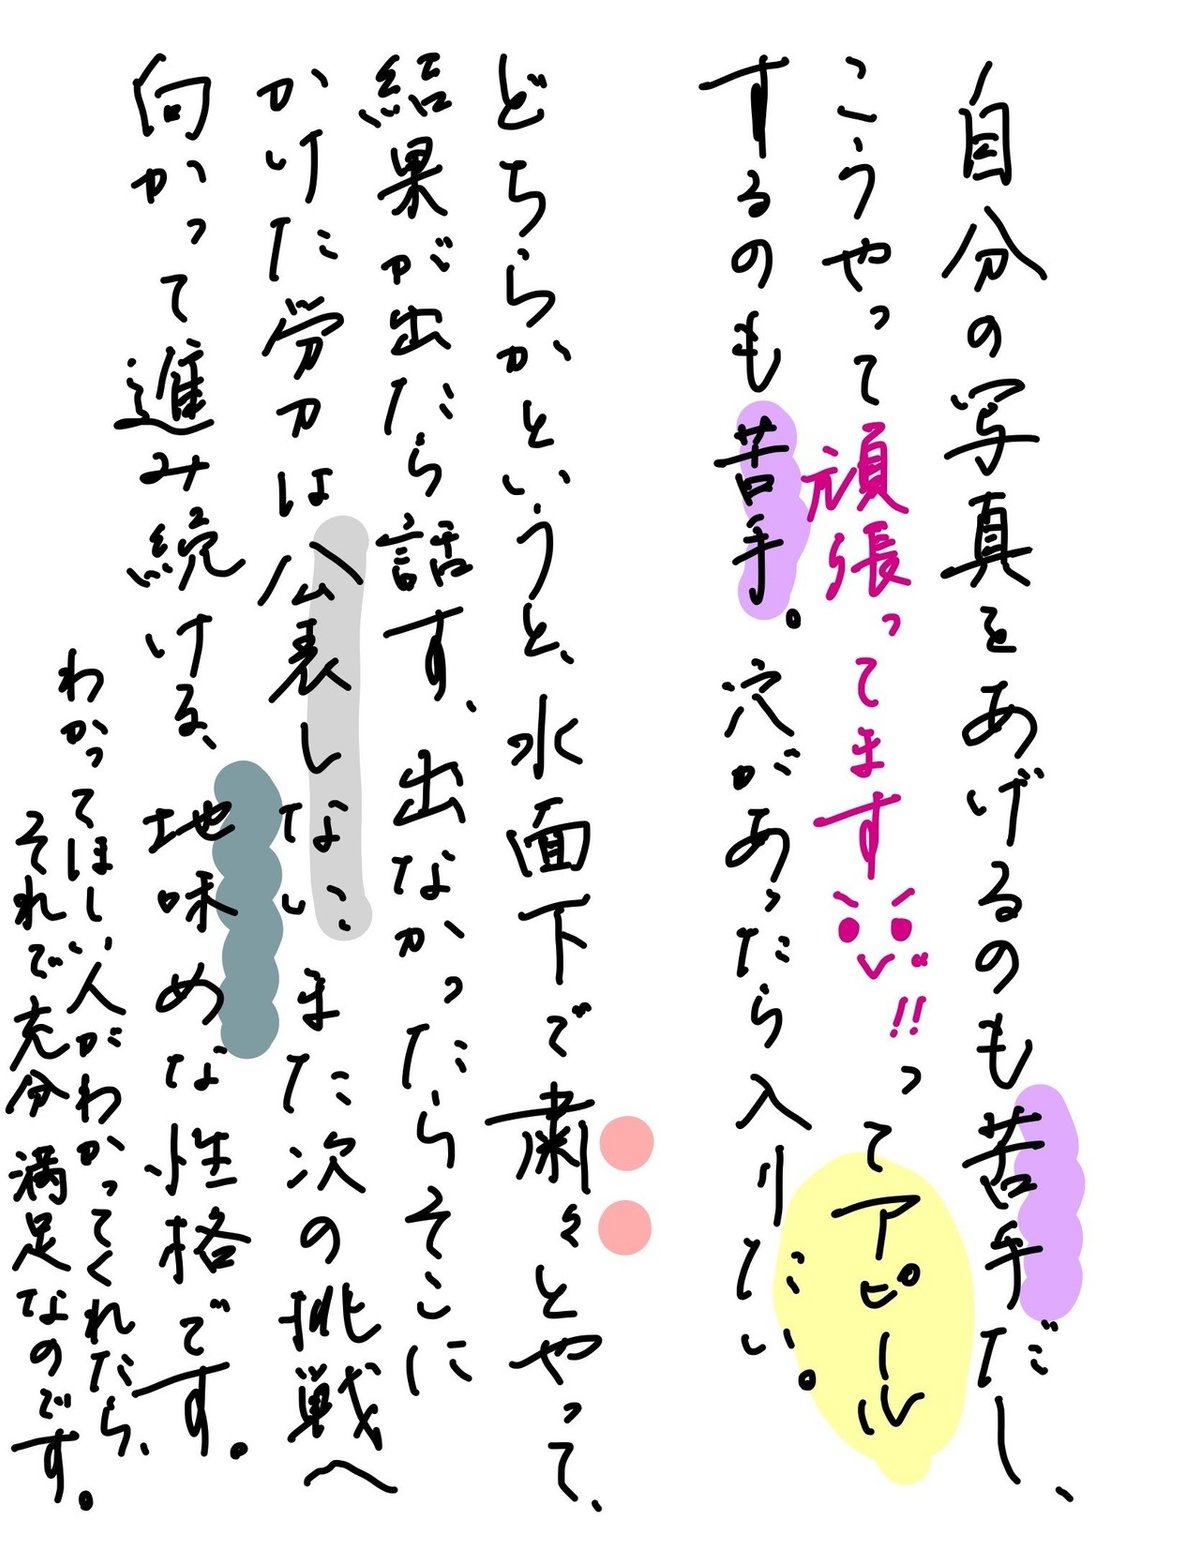 自分の写真をあげるのも苦手だし、
こうやって頑張ってます!!ってアピール
するのも苦手。穴があったら入りたい。
どちらかというと、水面下で粛々とやって、
結果が出たら話す、出なかったらそこに
かけた労力は公表しない、また次の挑戦へ
向かって進み続ける、地味めな性格です。
わかってほしい人がわかってくれたら、
それで充分満足なのです。